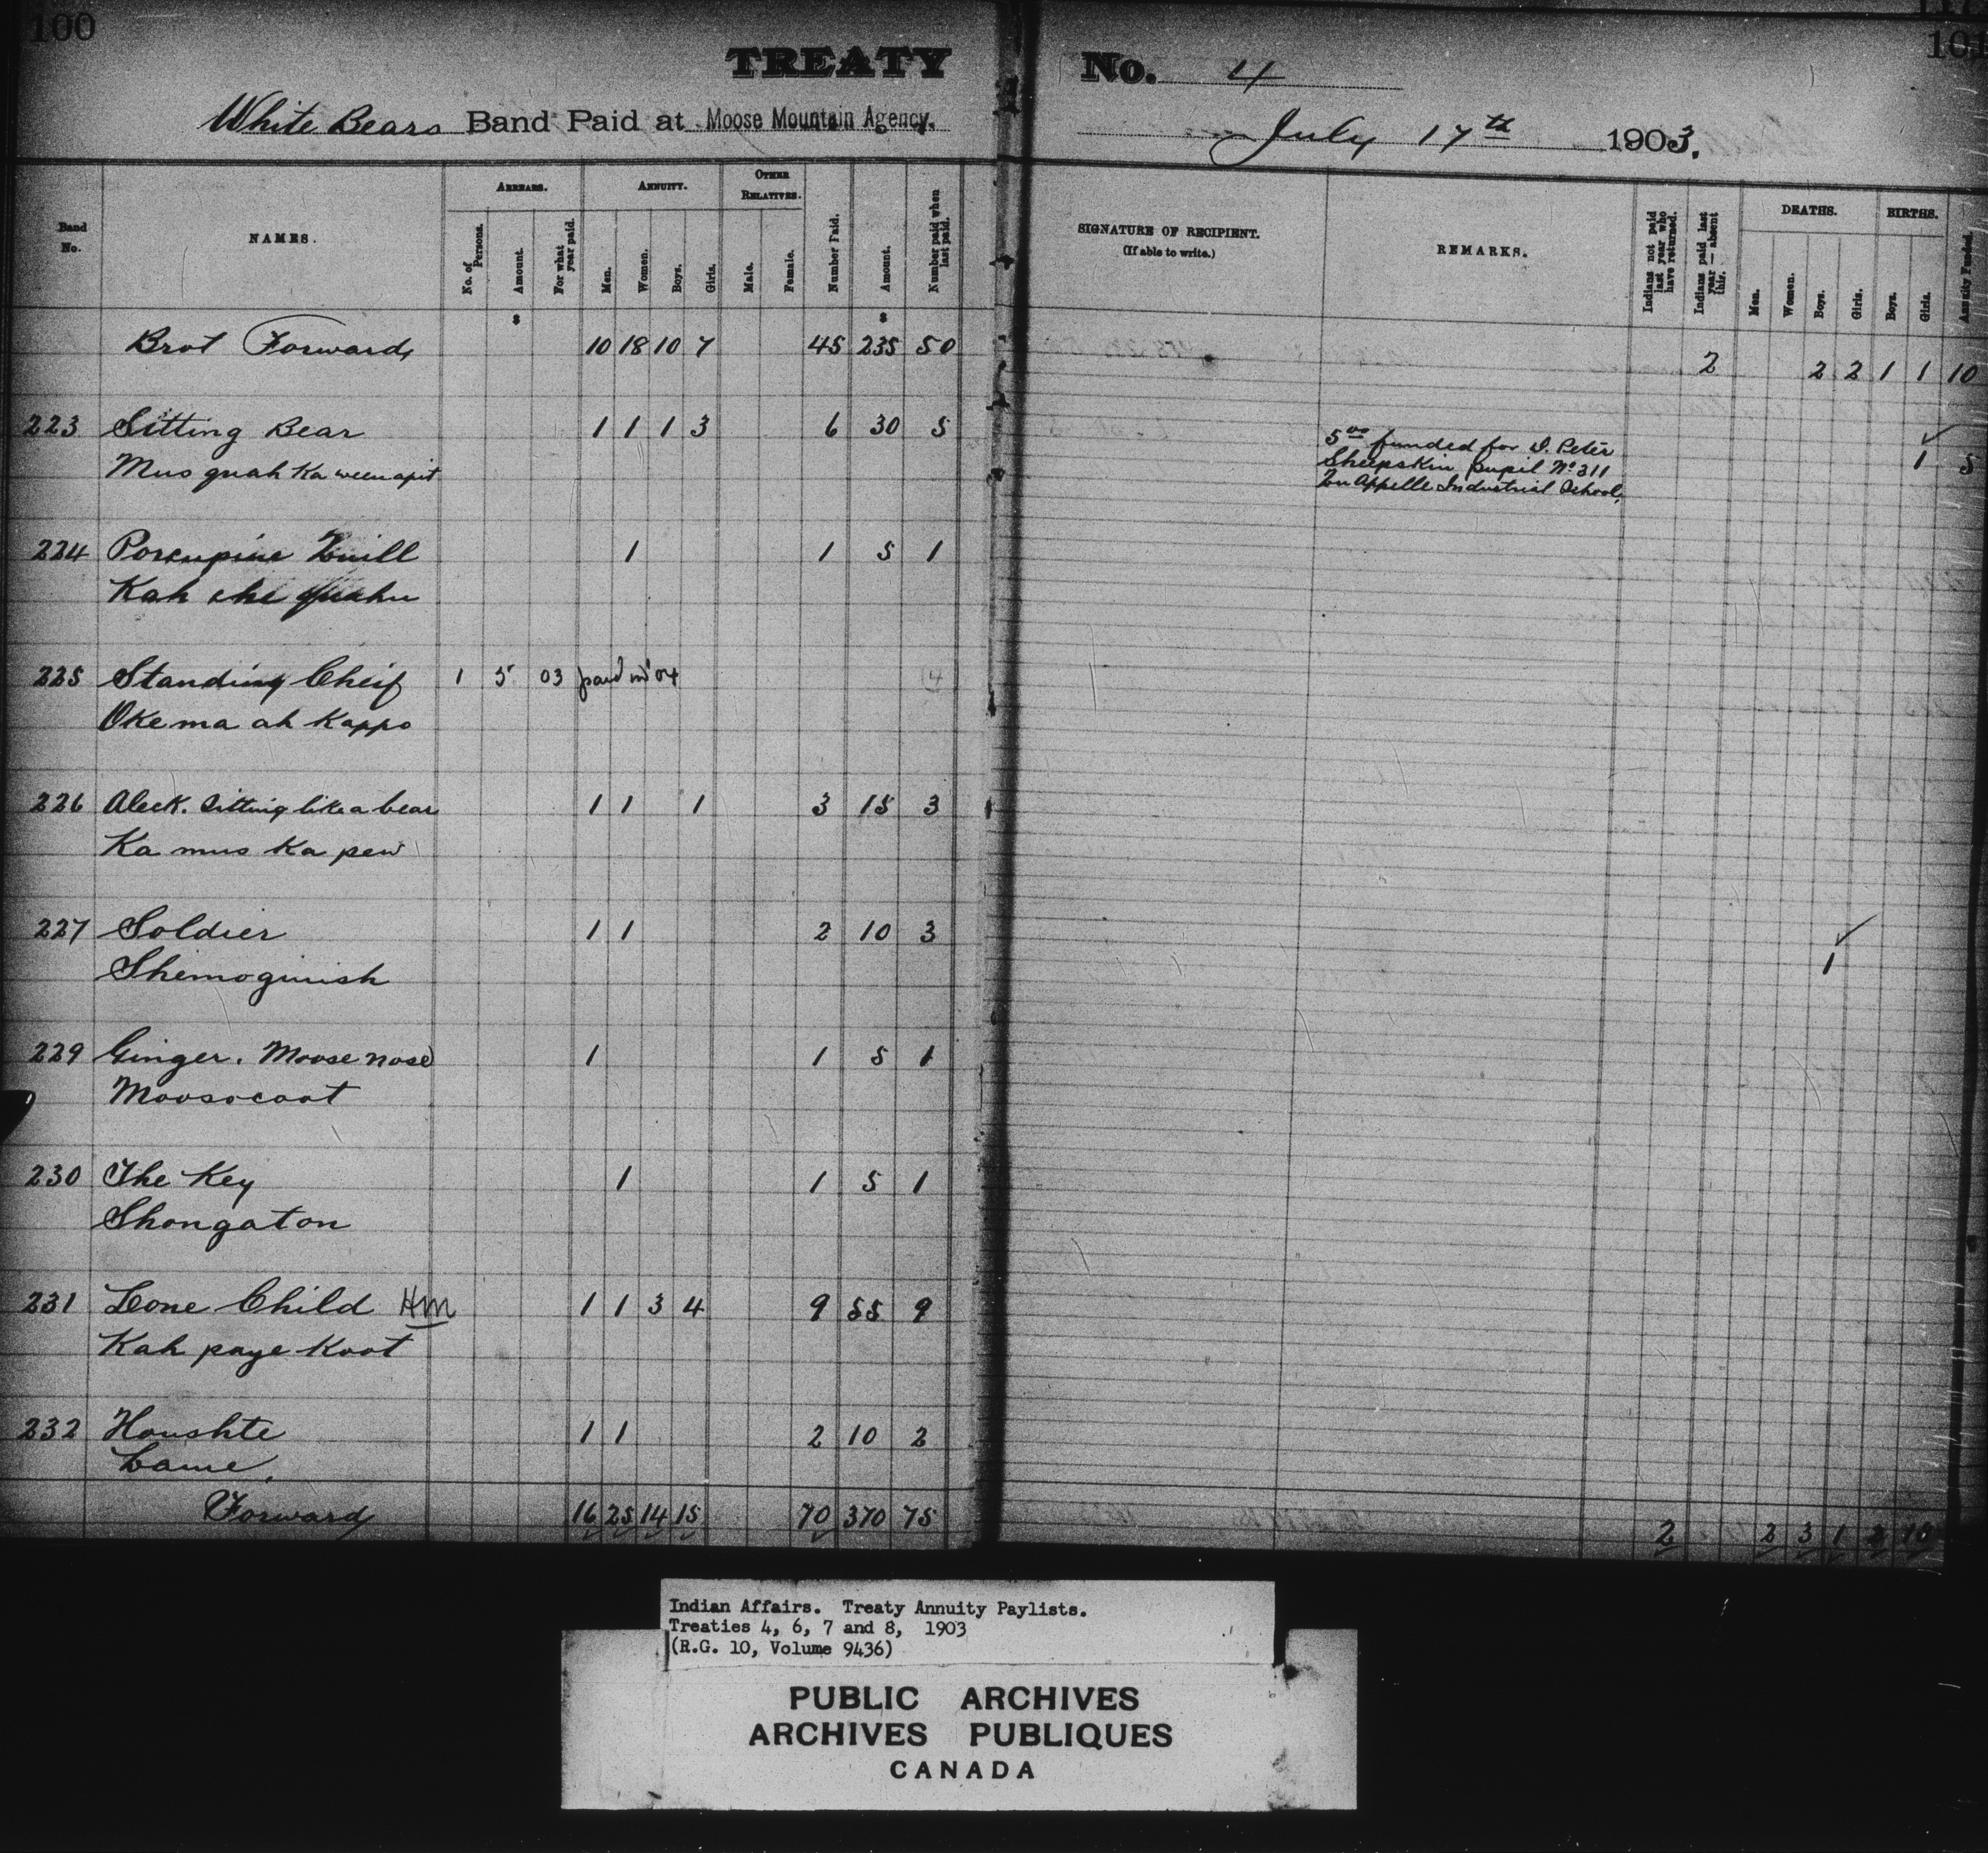 100
TREATY No. 4
101
White Bears Band Paid at Moose Mountain Agency. July 17th 1903.
Band No. NAMES. ARREARS. No. of Persons. Amount. For what year paid. ANNUITY. Men. Women. Boys. Girls. OTHER RELATIVES. Male. Female. Number Paid. Amount. Number paid when last paid. SIGNATURE OF RECIPIENT. (If able to write.) REMARKS. Indians not paid last year who have returned. Indians paid last year — absent this. DEATHS. Men. Women. Boys. Girls. BIRTHS. Boys. Girls. Annuity Funded.
$ $
Brot Forward 10 18 10 7 45 235 50 2 2 2 1 1 10
223 Sitting Bear 1 1 1 3 6 30 5 1 5
Mus quah Ka ween apit
500 funded for D. Peter
Sheepskin pupil No 311
Qu Appelle Industrial School.
224 Porcupine Quill 1 1 5 1
Kah che
225 Standing Cheif 1 5 03 paid in '04 4
Oke ma ah Kappo
226 Aleck. Sitting like a bear 1 1 1 3 15 3
Ka mus Ka pew
227 Soldier 1 1 2 10 3 1
Shemoginish
229 Ginger. Moose nose 1 1 5 1
Moosocoot
230 The Key 1 1 5 1
Shongaton
231 Lone Child HM 1 1 3 4 9 55 9
Kah paye Koot
232 Houshte 1 1 2 10 2
Lame.
Forward 16 25 14 15 70 370 75 2 2 3 1 2 15
Indian Affairs. Treaty Annuity Paylists.
Treaties 4, 6, 7 and 8, 1903
(R.G. 10, Volume 9436)
PUBLIC ARCHIVES
ARCHIVES PUBLIQUES
CANADA